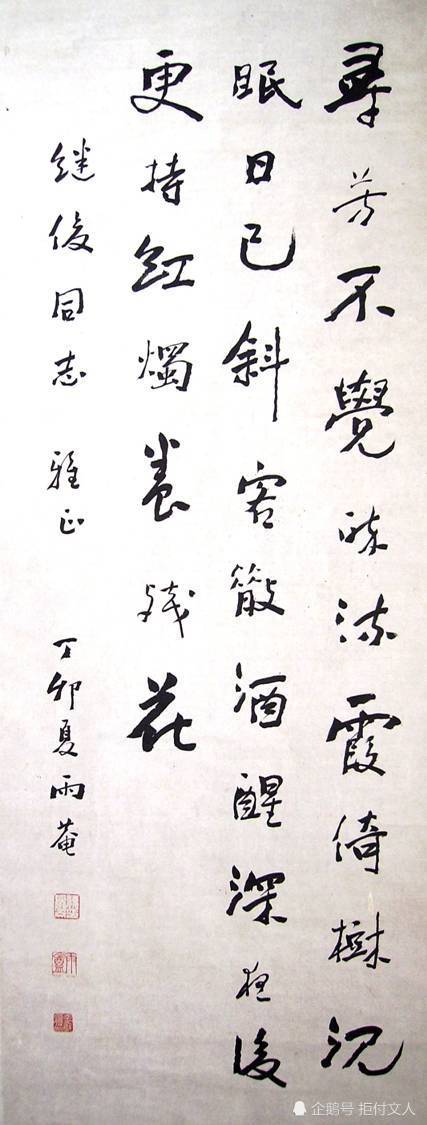 尋芳不覺醉流霞倚樹沉
眠日已斜客散酒醒深夜後
更持紅燭賞残花
继俊同志 雅正 丁卯夏雨菴
企鹅号 拒付文人